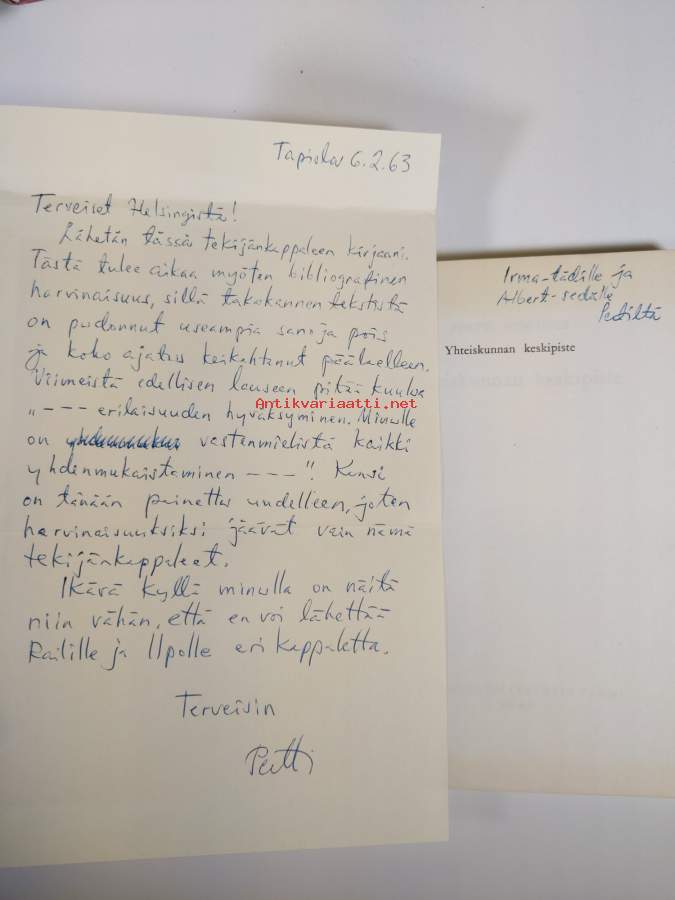 Tapiola 6.2.63
Terveiset Helsingistä!
Lähetän tässä tekijänkappaleen kirjaani.
Tästä tulee aikaa myöten bibliografinen
harvinaisuus, sillä takakannen tekstistä
on pudonnut useampia sanoja pois
ja koko ajatus keikahtanut päälaelleen.
Viimeistä edellisen lauseen pitää kuulua
"--- erilaisuuden hyväksyminen. Minulle
on vastenmielistä kaikki
yhdenmukaistaminen ---". Kansi
on tänään painettu uudelleen, joten
harvinaisuuksiksi jäävät vain nämä
tekijänkappaleet.
Ikävä kyllä minulla on näitä
niin vähän, että en voi lähettää
Railille ja Ilpolle eri kappaletta.
Terveisin
Pertti
Irma-tädille ja
Albert-sedälle
Pertiltä
Yhteiskunnan keskipiste
Antikvariaatti.net